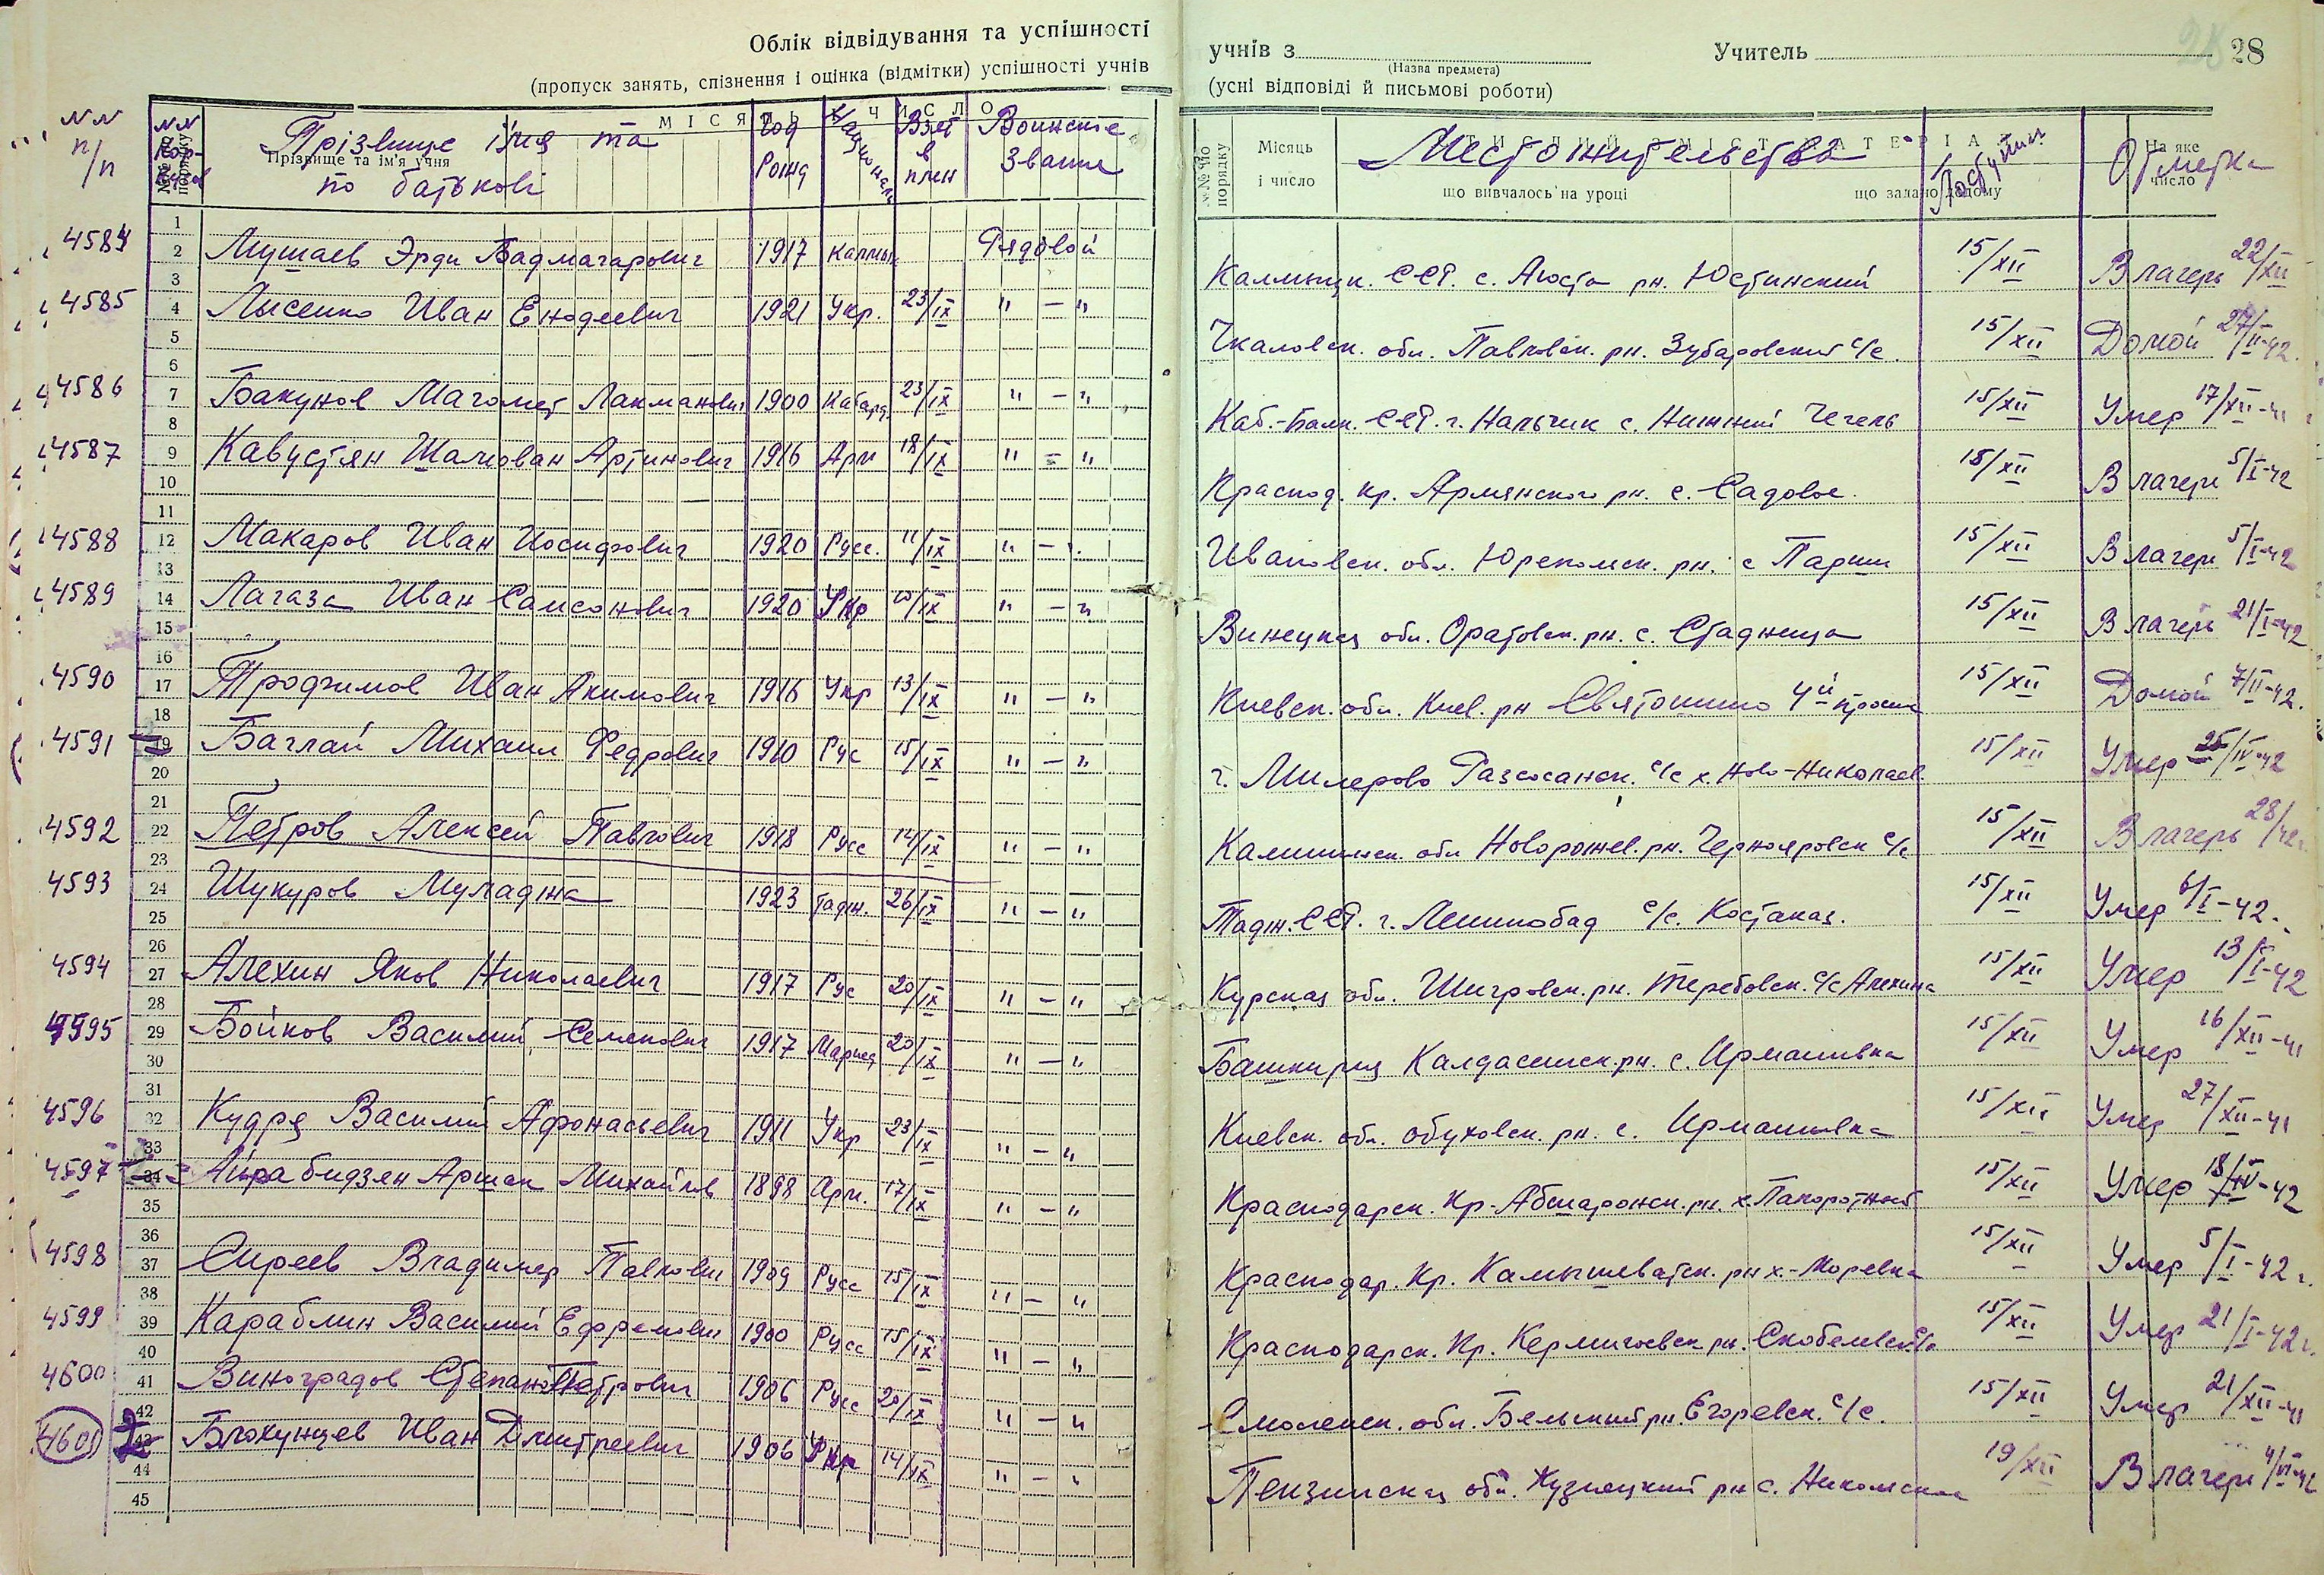 Облік відвідування та успішності
(пропуск занять, спізнення і оцінка (відмітки) успішності учнів
учнів з Учитель 28
(Назва предмета)
(усні відповіді й письмові роботи)
NN п/п NN МІСЯЦЬ І ЧИСЛО
Прізвище імя та по батькові Год Рожд Национал Взят в плен Воинские Звание
Прізвище та ім'я учня
№№ по порядку Місяць і число Местожительства Поступил Отметка
що вивчалось на уроці що задано додому На яке число
1
4584 2 Мушаев Эрди Бадмагарович 1917 калмык Рядовой Калмыцк. ССР. с. Аюста рн. Юстинский 15/XII В лагерь 22/XII
3
4585 4 Лысенко Иван Енодеевич 1921 Укр. 23/IX " – " Чкаловск. обл. Павловск. рн. Зубаровский с/с. 15/XII Домой 27/II-42.
5
6
4586 7 Бакунов Магомет Лакманович 1900 Кабард. 23/IX " – " Каб.-Балк. ССР. г. Нальчик с. Нижний Чегель 15/XII Умер 17/XII-41
8
4587 9 Кавустян Шалюван Артинович 1916 Арм 18/IX " – " Краснод. кр. Армянского рн. с. Садовое. 15/XII В лагерь 5/I-42
10
11
4588 12 Макаров Иван Иосифович 1920 Русс. 11/IX " – " Ивановск. обл. Юрьев­омск. рн. с Парши 15/XII В лагерь 5/I-42
13
4589 14 Лагаза Иван Самсонович 1920 Укр /IX " – " Винецкая обл. Оратовск. рн. с. Стадница 15/XII В лагерь 21/I-42
15
16
4590 17 Трофимов Иван Акимович 1916 Укр 13/IX " – " Киевск. обл. Киев. рн Святошино 4й просек 15/XII Домой 7/II-42.
18
4591 19 Баглай Михаил Федрович 1910 Рус 15/IX " – " г. Милерово Разсосанск. с/с х. Ново-Николаев 15/XII Умер 25/IV-42
20
21
4592 22 Петров Алексей Павлович 1918 Русс 14/IX " – " Калининск. обл Новоржев. рн. Чернояровск с/с 15/XII В лагерь 28/42г.
23
4593 24 Шукуров Муладжа 1923 Тадж. 26/IX " – " Тадж. ССР. г. Ленинобад с/с. Костаказ. 15/XII Умер 6/I-42.
25
26
4594 27 Алехин Яков Николаевич 1917 Рус 20/IX " – " Курская обл. Шигровск. рн. Теребовск. с/с Алехина 15/XII Умер 13/I-42
28
4595 29 Бойков Василий Семенович 1917 Мариец 20/IX " – " Башкирия Калдасинск. рн. с. Ирмашивка 15/XII Умер 16/XII-41
30
31
4596 32 Кудря Василий Афонасьевич 1911 Укр 23/IX " – " Киевск. обл. обуховск. рн. с. Ирмашивка 15/XII Умер 27/XII-41
33
4597 34 Айрабидзян Аршак Михайлов 1898 Арм. 17/IX " – " Краснодарск. Кр. Абшаронск. рн. х. Папоротный 15/XII Умер 18/IV-42
35
36
4598 37 Сиреев Владимер Павлович 1909 Русс 15/IX " – " Краснодар. Кр. Камышеватск. рн х.-Моревка 15/XII Умер 5/I-42г.
38
4599 39 Караблин Василий Ефремович 1900 Русс 15/IX " – " Краснодарск. Кр. Кермигоевск рн. Скобелевск с/с 15/XII Умер 21/I-42г.
40
4600 41 Виноградов Степан Петрович 1906 Русс 20/IX " – " Смоленск. обл. Бельский рн Егоревск. с/с. 15/XII Умер 21/XII-41
42
4601 43 Блохунцев Иван Дмитреевич 1906 Укр 14/IX " – " Пензинская обл. Кузнецкий рн с. Никольское 19/XII В лагерь 4/VI-42
44
45